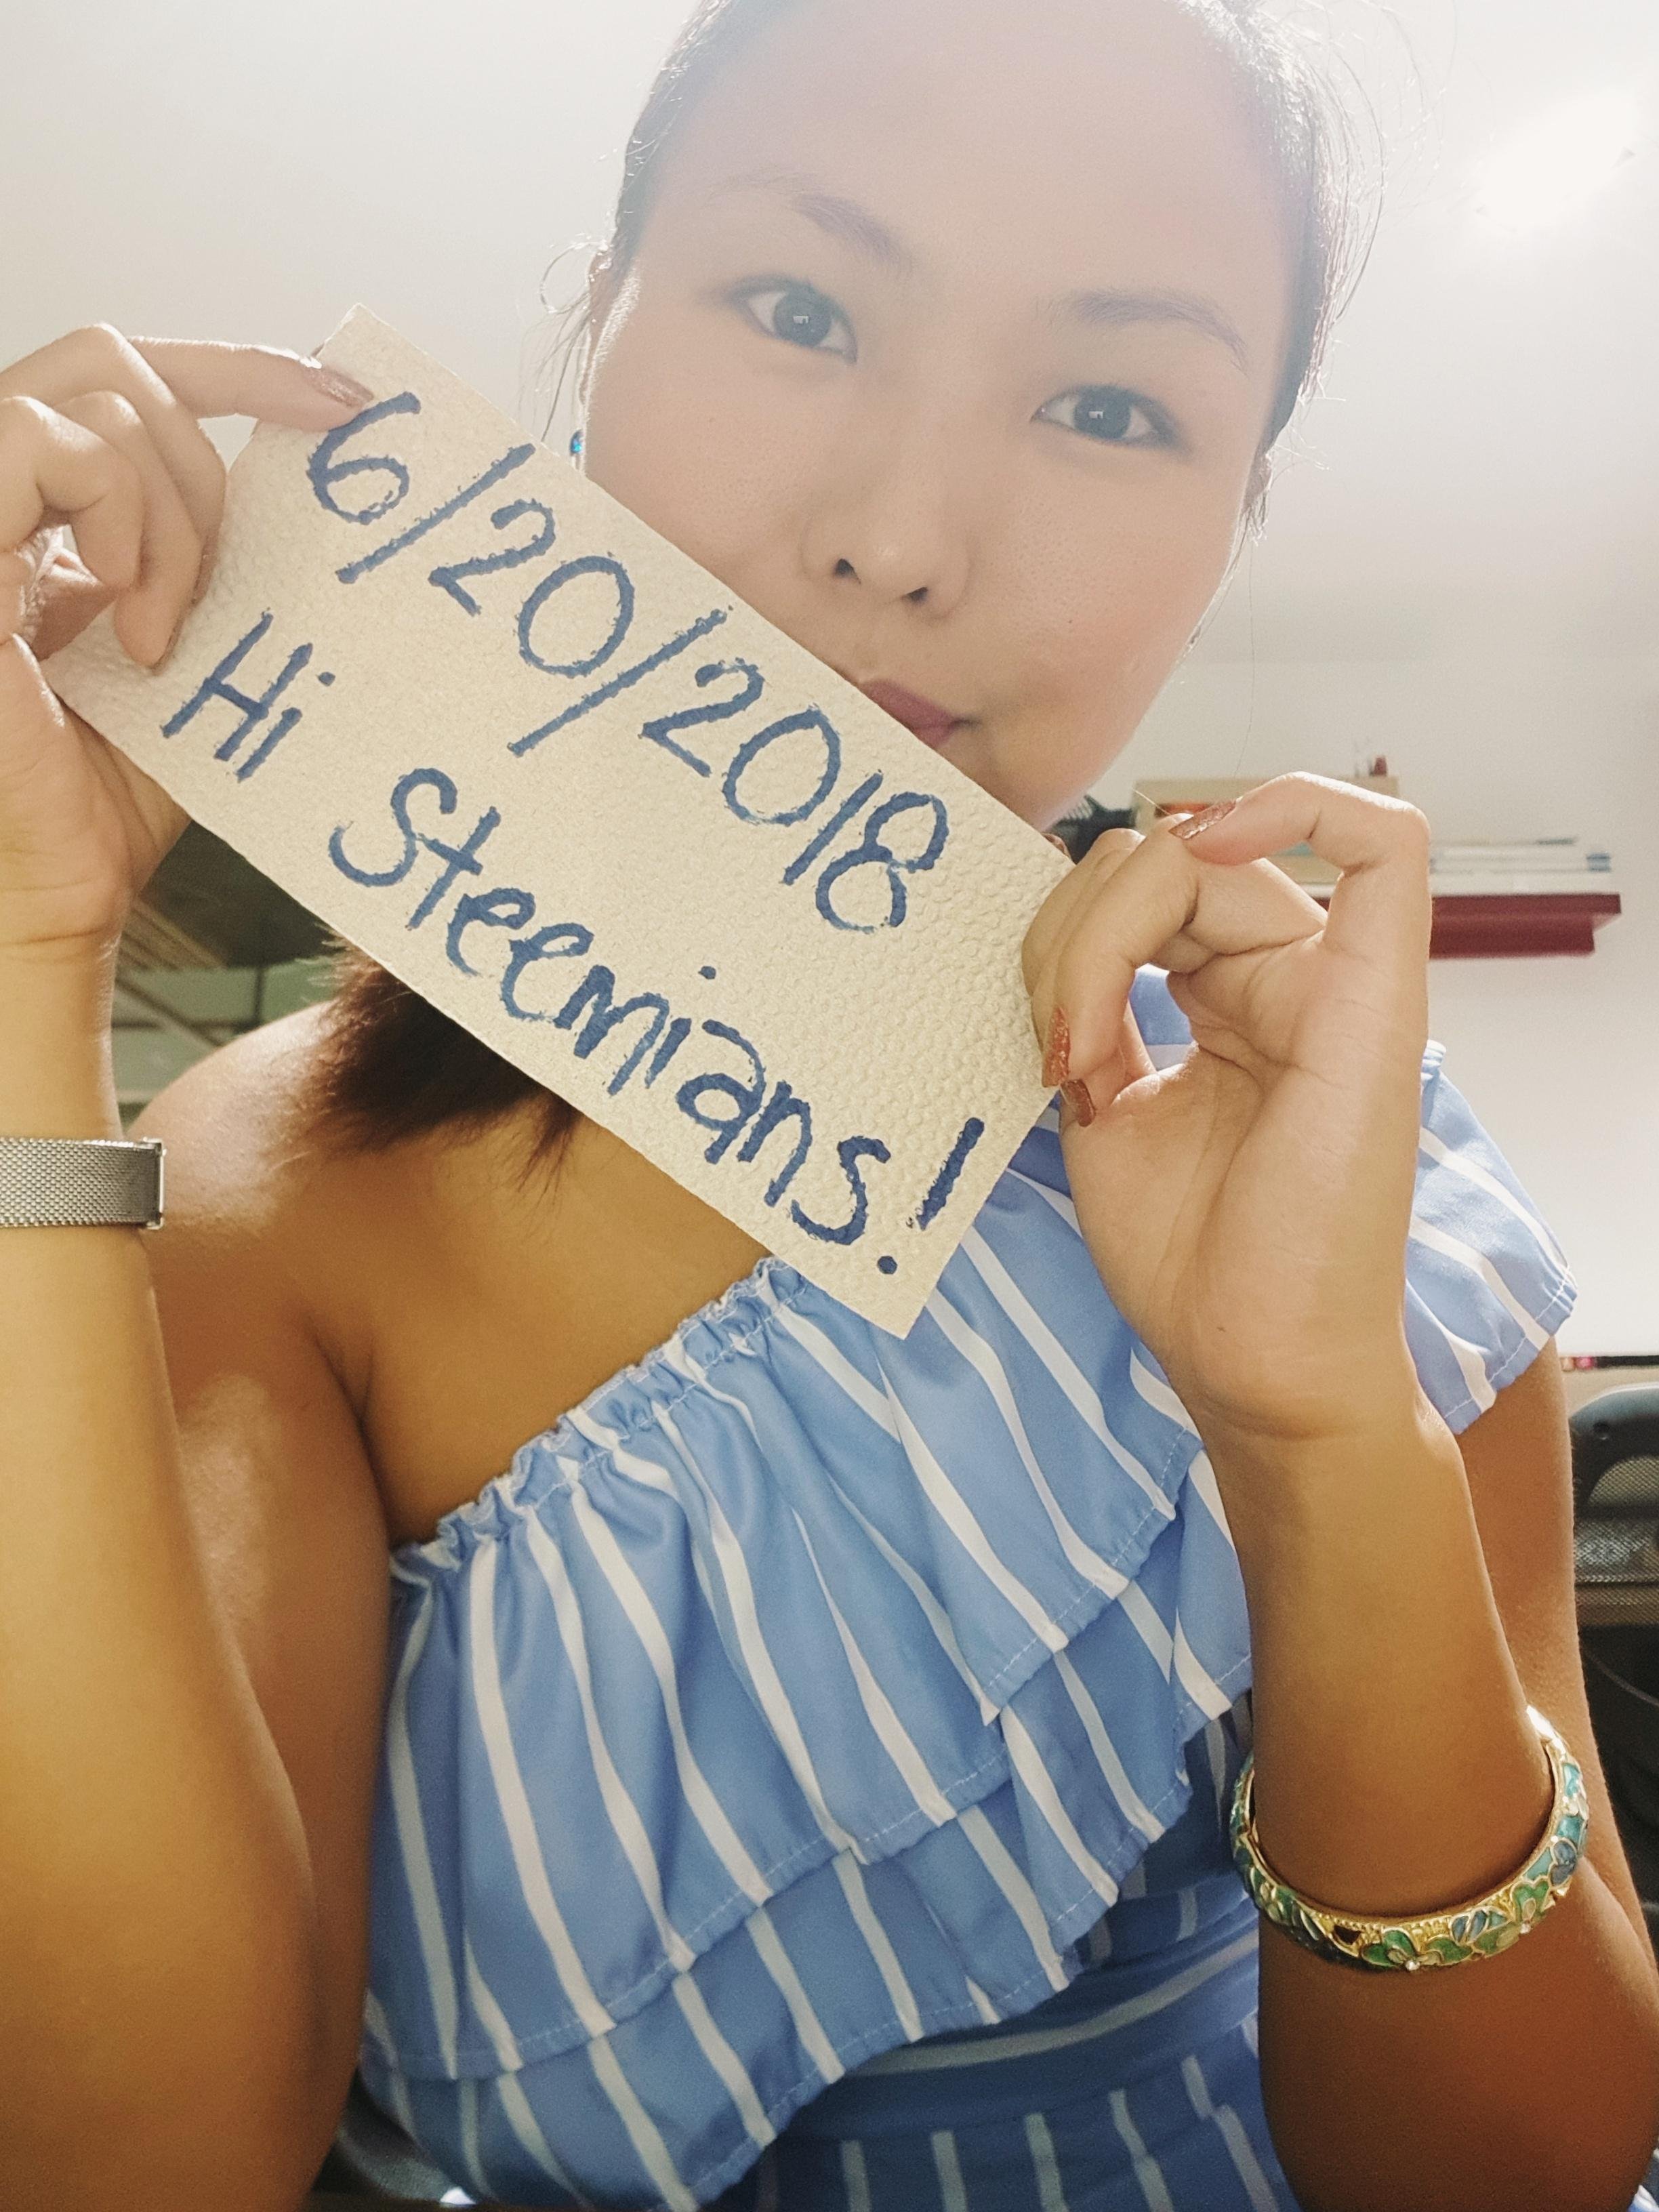 6/20/2018
Hi Steemians!